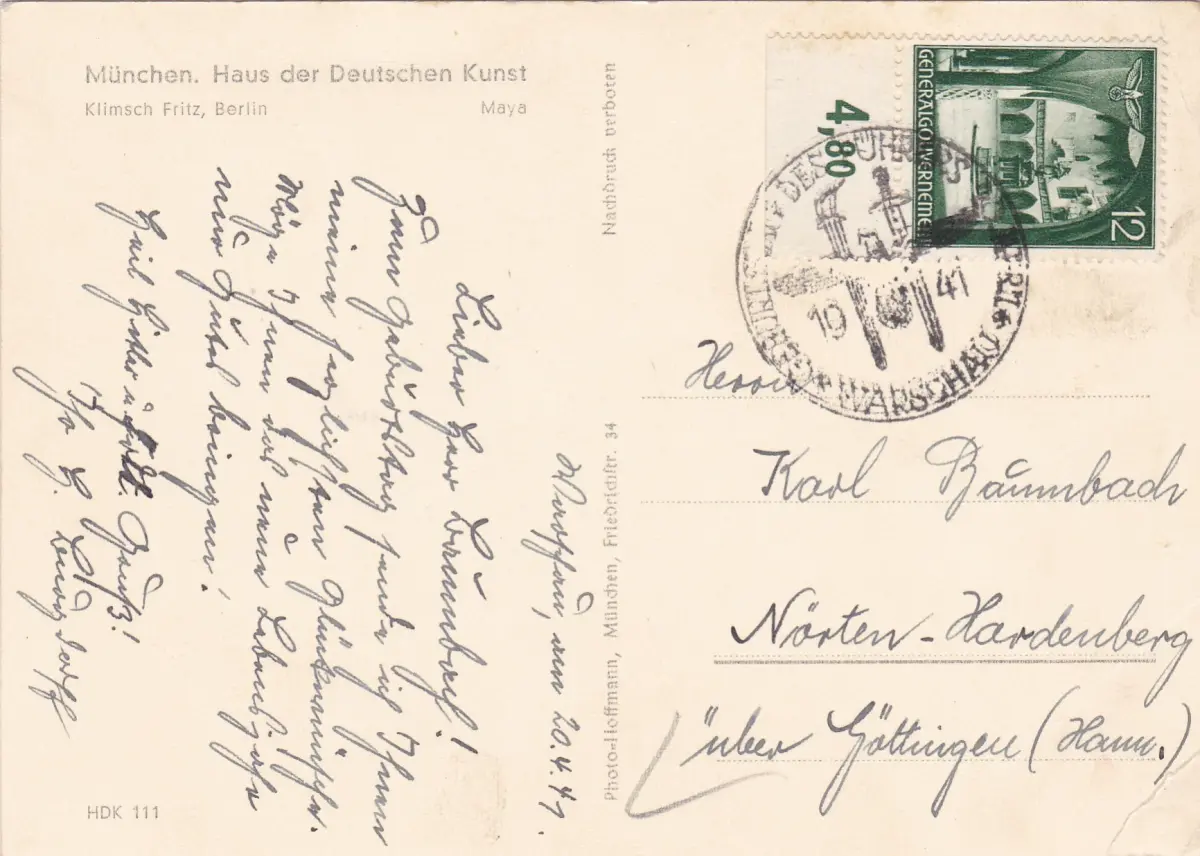 München. Haus der Deutschen Kunst
Klimsch Fritz, Berlin Maya
Warschau, am 20.4.41.
Lieber Herr Baumbach!
Zum Geburtstag sende ich Ihnen
meine herzlichsten Glückwünsche.
Möge Ihnen das neue Lebensjahr
nur Gutes bringen!
Heil Hitler u. Gruß!
HDK 111
Nachdruck verboten
Photo-Hoffmann, München, Friedrichstr. 34
4,80
GENERALGOUVERNEMENT
12
DES FÜHRERS
10 41
WARSCHAU
Herrn
Karl Baumbach
Nörten-Hardenberg
über Göttingen (Hann.)